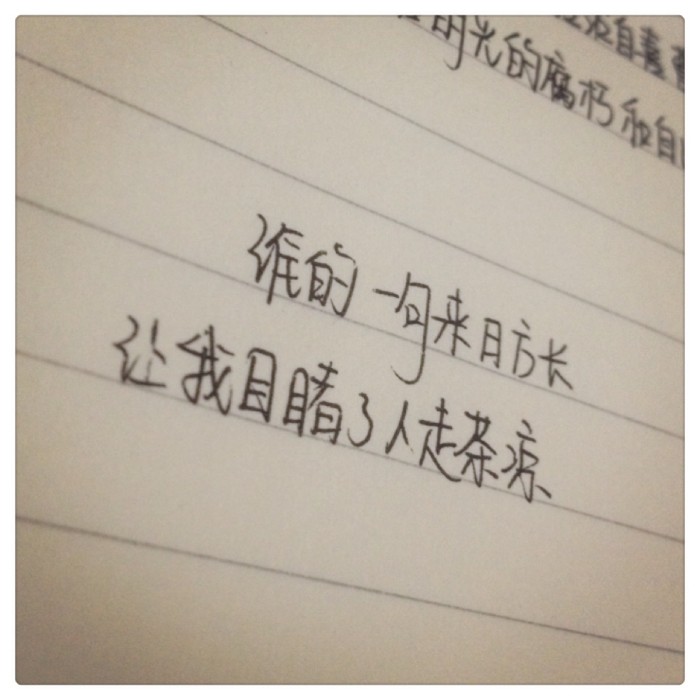 自喜
时光的腐朽和自
谁的一句来日方长
让我目睹了人走茶凉